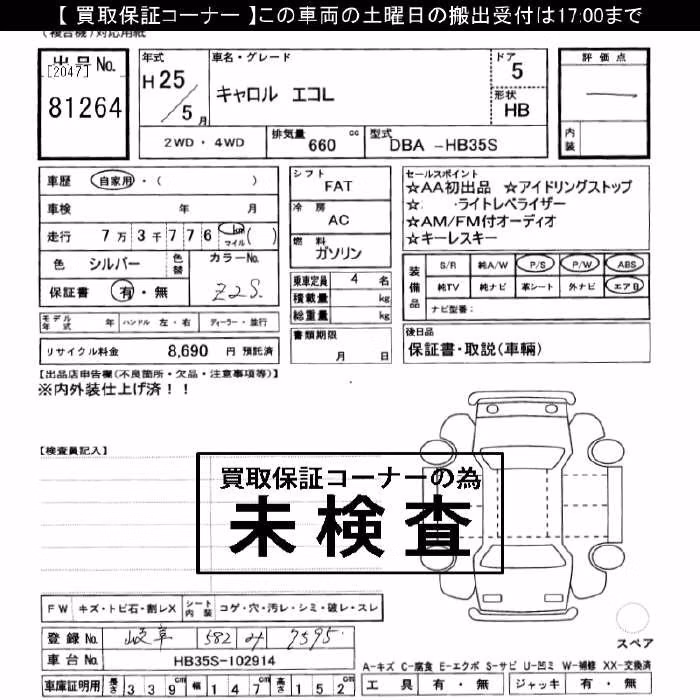 【 買取保証コーナー 】この車両の土曜日の搬出受付は17:00まで
(複合機)対応用紙
出品No.
[2047]
81264
年式
H25/5月
車名・グレード
キャロル エコL
ドア
5
形状
HB
評価点
内装
2WD・4WD
排気量 660 cc
型式 DBA -HB35S
車歴 自家用・( )
車検 年 月
走行 7万3千776 km マイル( )
色 シルバー 色替
カラーNo.
Z2S
保証書 有・無
シフト
FAT
冷房
AC
燃料
ガソリン
セールスポイント
☆AA初出品 ☆アイドリングストップ
☆ ・ライトレベライザー
☆AM/FM付オーディオ
☆キーレスキー
装備品
S/R 純A/W P/S P/W ABS
純TV 純ナビ 革シート 外ナビ エアB
ナビ型番:
乗車定員 4 名
積載量 kg
総重量 kg
モデル年式 年 ハンドル 左・右 ディーラー・並行
書類期限
月 日
後日品
保証書・取説(車輛)
リサイクル料金 8,690 円 預託済
【出品店申告欄(不良箇所・欠品・注意事項等)】
※内外装仕上げ済!!
【検査員記入】
買取保証コーナーの為
未検査
FW キズ・トビ石・割レX シート内装 コゲ・穴・汚レ・シミ・破レ・スレ
登録No. 岐阜 582 み 7595
車台No. HB35S-102914
車庫証明用 長さ 339cm 幅 147cm 高さ 152cm
スペア
A-キズ C-腐食 E-エクボ S-サビ U-凹ミ W-補修 XX-交換済
工具 有・無 ジャッキ 有・無